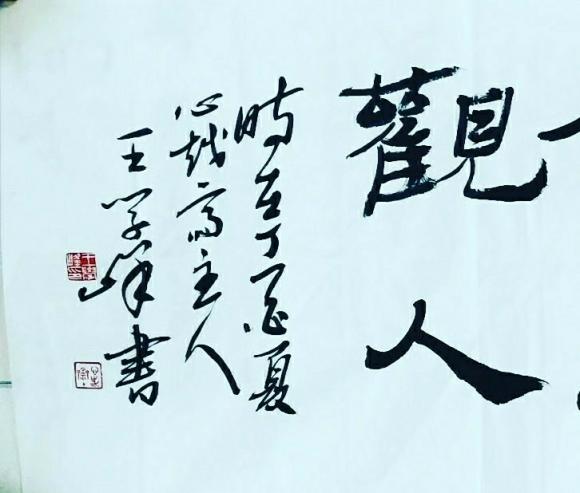 觀人
時在丁酉夏
心越斋主人
王学峰書